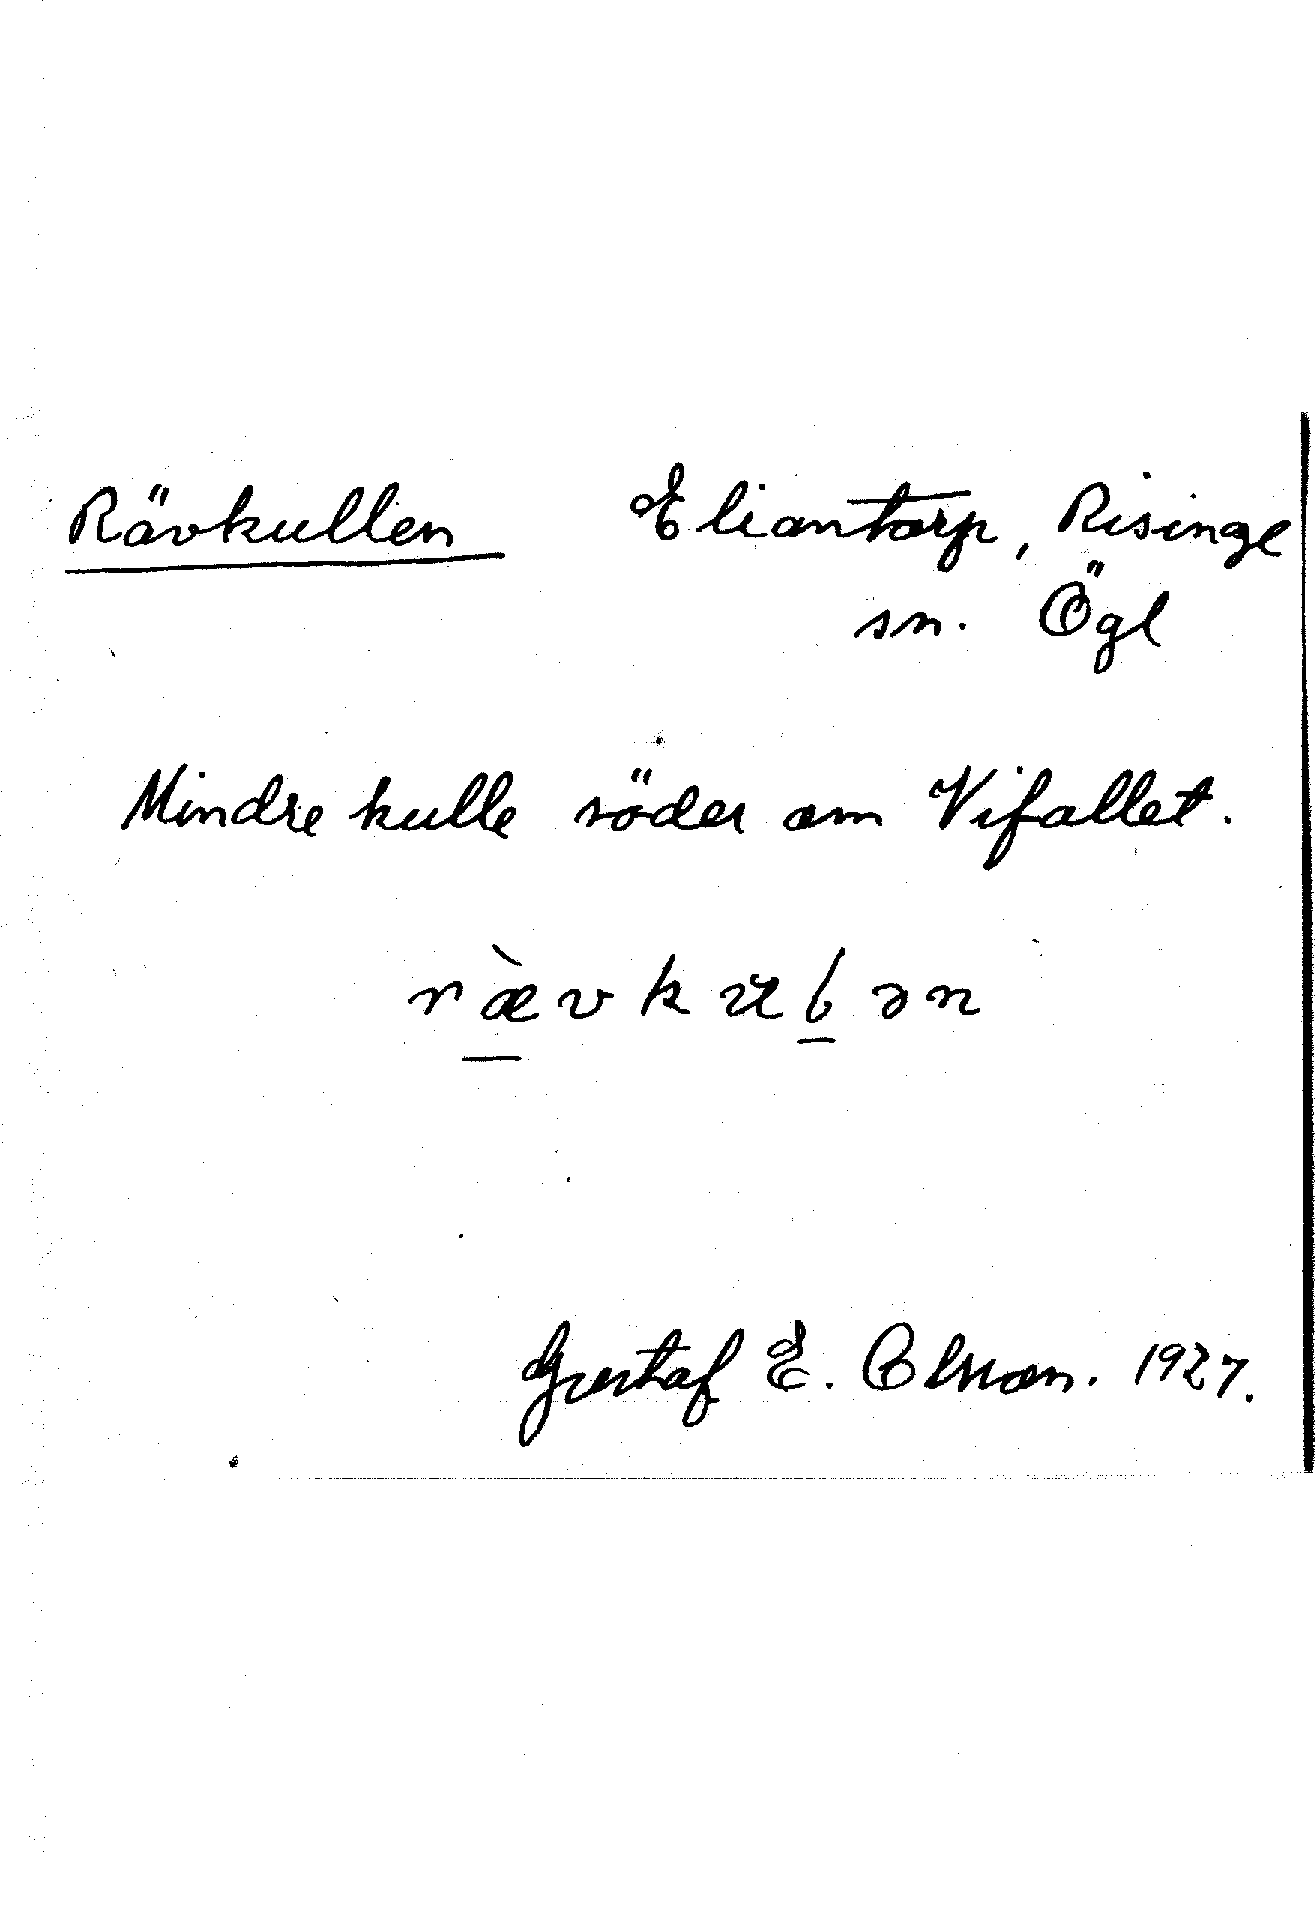 Rävkullen Eliantorp, Risinge
sn. Ögl
Mindre kulle söder om Vifallet.
Gustaf E. Olsson. 1927.